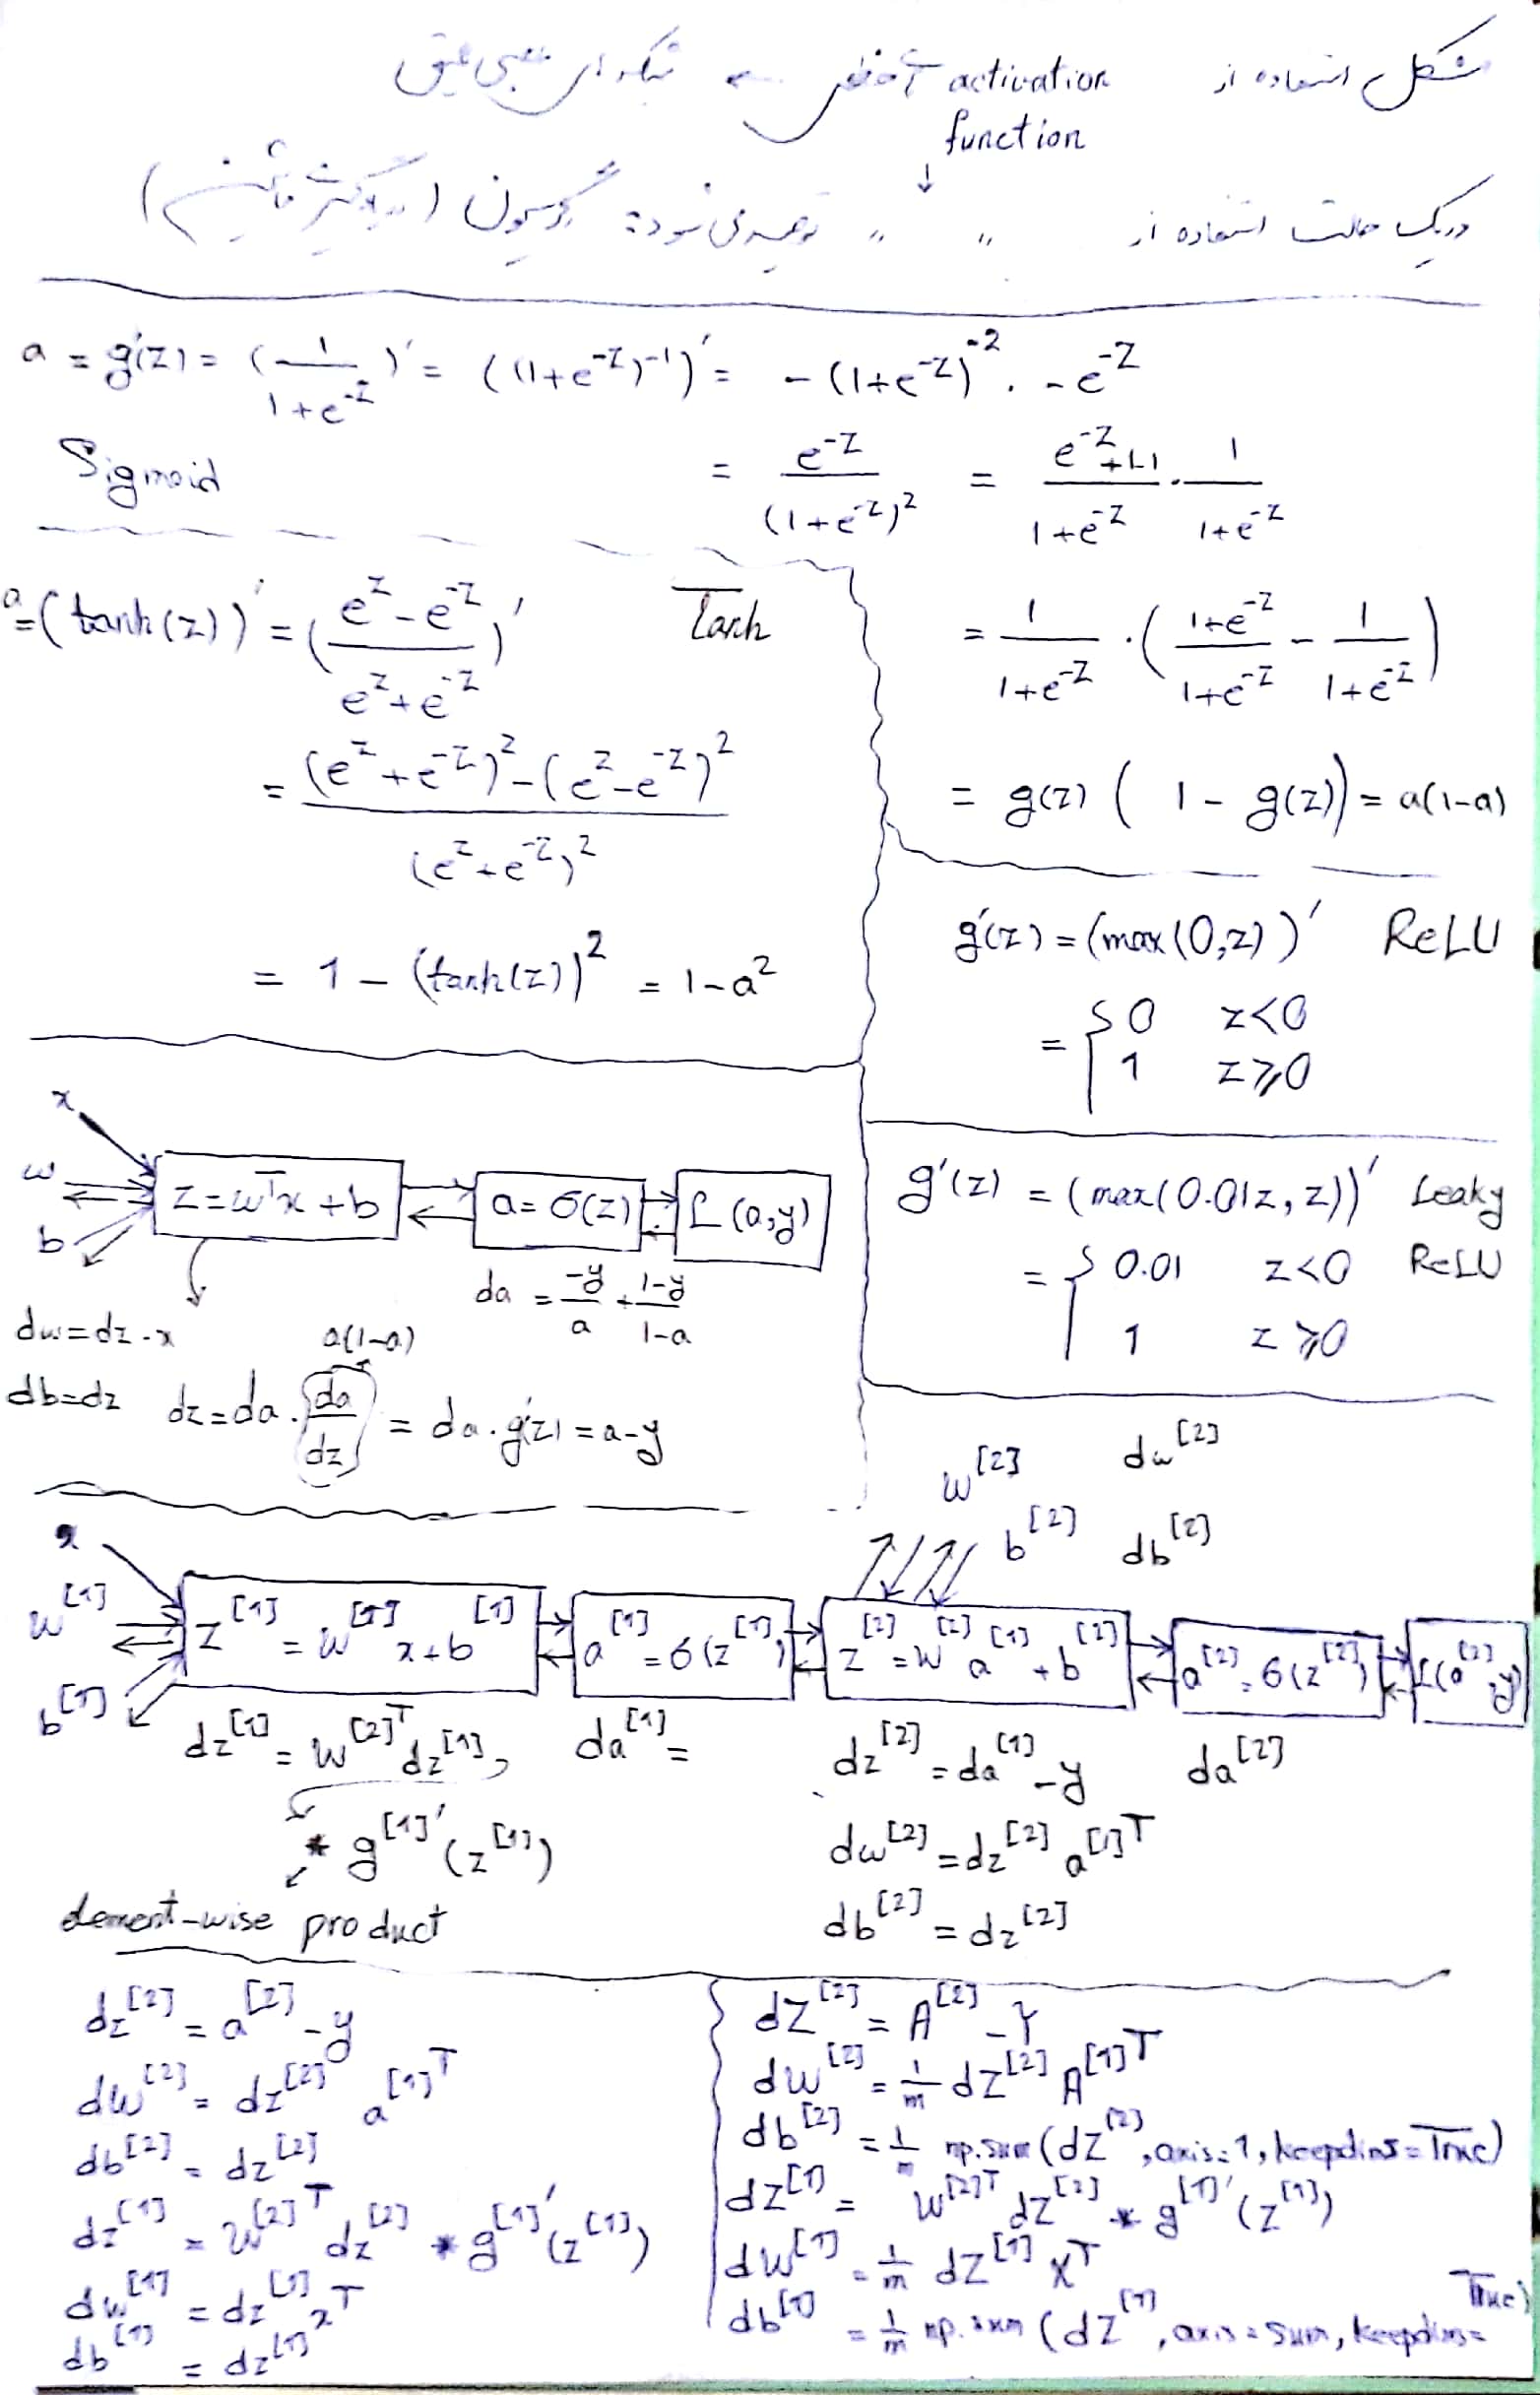 مشکل استفاده از activation function خطی → شبکه های عصبی عمیق
در یک حالت استفاده از 〃 〃 توصیه می شود: رگرسیون
a = g'(z) = (1/(1+e^-z))' = ((1+e^-z)^-1)' = -(1+e^-z)^-2 . -e^-z
Sigmoid
= e^-z/(1+e^-z)^2 = (e^-z+1-1)/(1+e^-z) . 1/(1+e^-z)
= 1/(1+e^-z) . ((1+e^-z)/(1+e^-z) - 1/(1+e^-z))
= g(z) ( 1 - g(z)) = a(1-a)
a = (tanh(z))' = ((e^z - e^-z)/(e^z + e^-z))' Tanh
= ((e^z + e^-z)^2 - (e^z - e^-z)^2)/(e^z + e^-z)^2
= 1 - (tanh(z))^2 = 1-a^2
g'(z) = (max(0,z))' ReLU
= { 0 z<0
1 z⩾0
g'(z) = (max(0.01z, z))' Leaky ReLU
= { 0.01 z<0
1 z⩾0
x
w
b
z = w^T x + b
a = σ(z)
L(a,y)
da = -y/a + (1-y)/(1-a)
dw = dz . x
a(1-a)
db = dz
dz = da . da/dz = da . g'(z) = a-y
w^[2] dw^[2]
b^[2] db^[2]
x
w^[1]
b^[1]
z^[1] = w^[1] x + b^[1]
a^[1] = σ(z^[1])
z^[2] = w^[2] a^[1] + b^[2]
a^[2] = σ(z^[2])
L(a^[2], y)
dz^[1] = w^[2]T dz^[1]
* g^[1]'(z^[1])
element-wise product
da^[1] =
dz^[2] = da^[1] - y
da^[2]
dw^[2] = dz^[2] a^[1]T
db^[2] = dz^[2]
dz^[2] = a^[2] - y
dw^[2] = dz^[2] a^[1]T
db^[2] = dz^[2]
dz^[1] = w^[2]T dz^[2] * g^[1]'(z^[1])
dw^[1] = dz^[1] x^T
db^[1] = dz^[1]
dZ^[2] = A^[2] - Y
dw^[2] = 1/m dZ^[2] A^[1]T
db^[2] = 1/m np.sum(dZ^[2], axis=1, keepdims=True)
dZ^[1] = w^[2]T dZ^[2] * g^[1]'(z^[1])
dw^[1] = 1/m dZ^[1] X^T
db^[1] = 1/m np.sum(dZ^[1], axis=sum, keepdims=True)